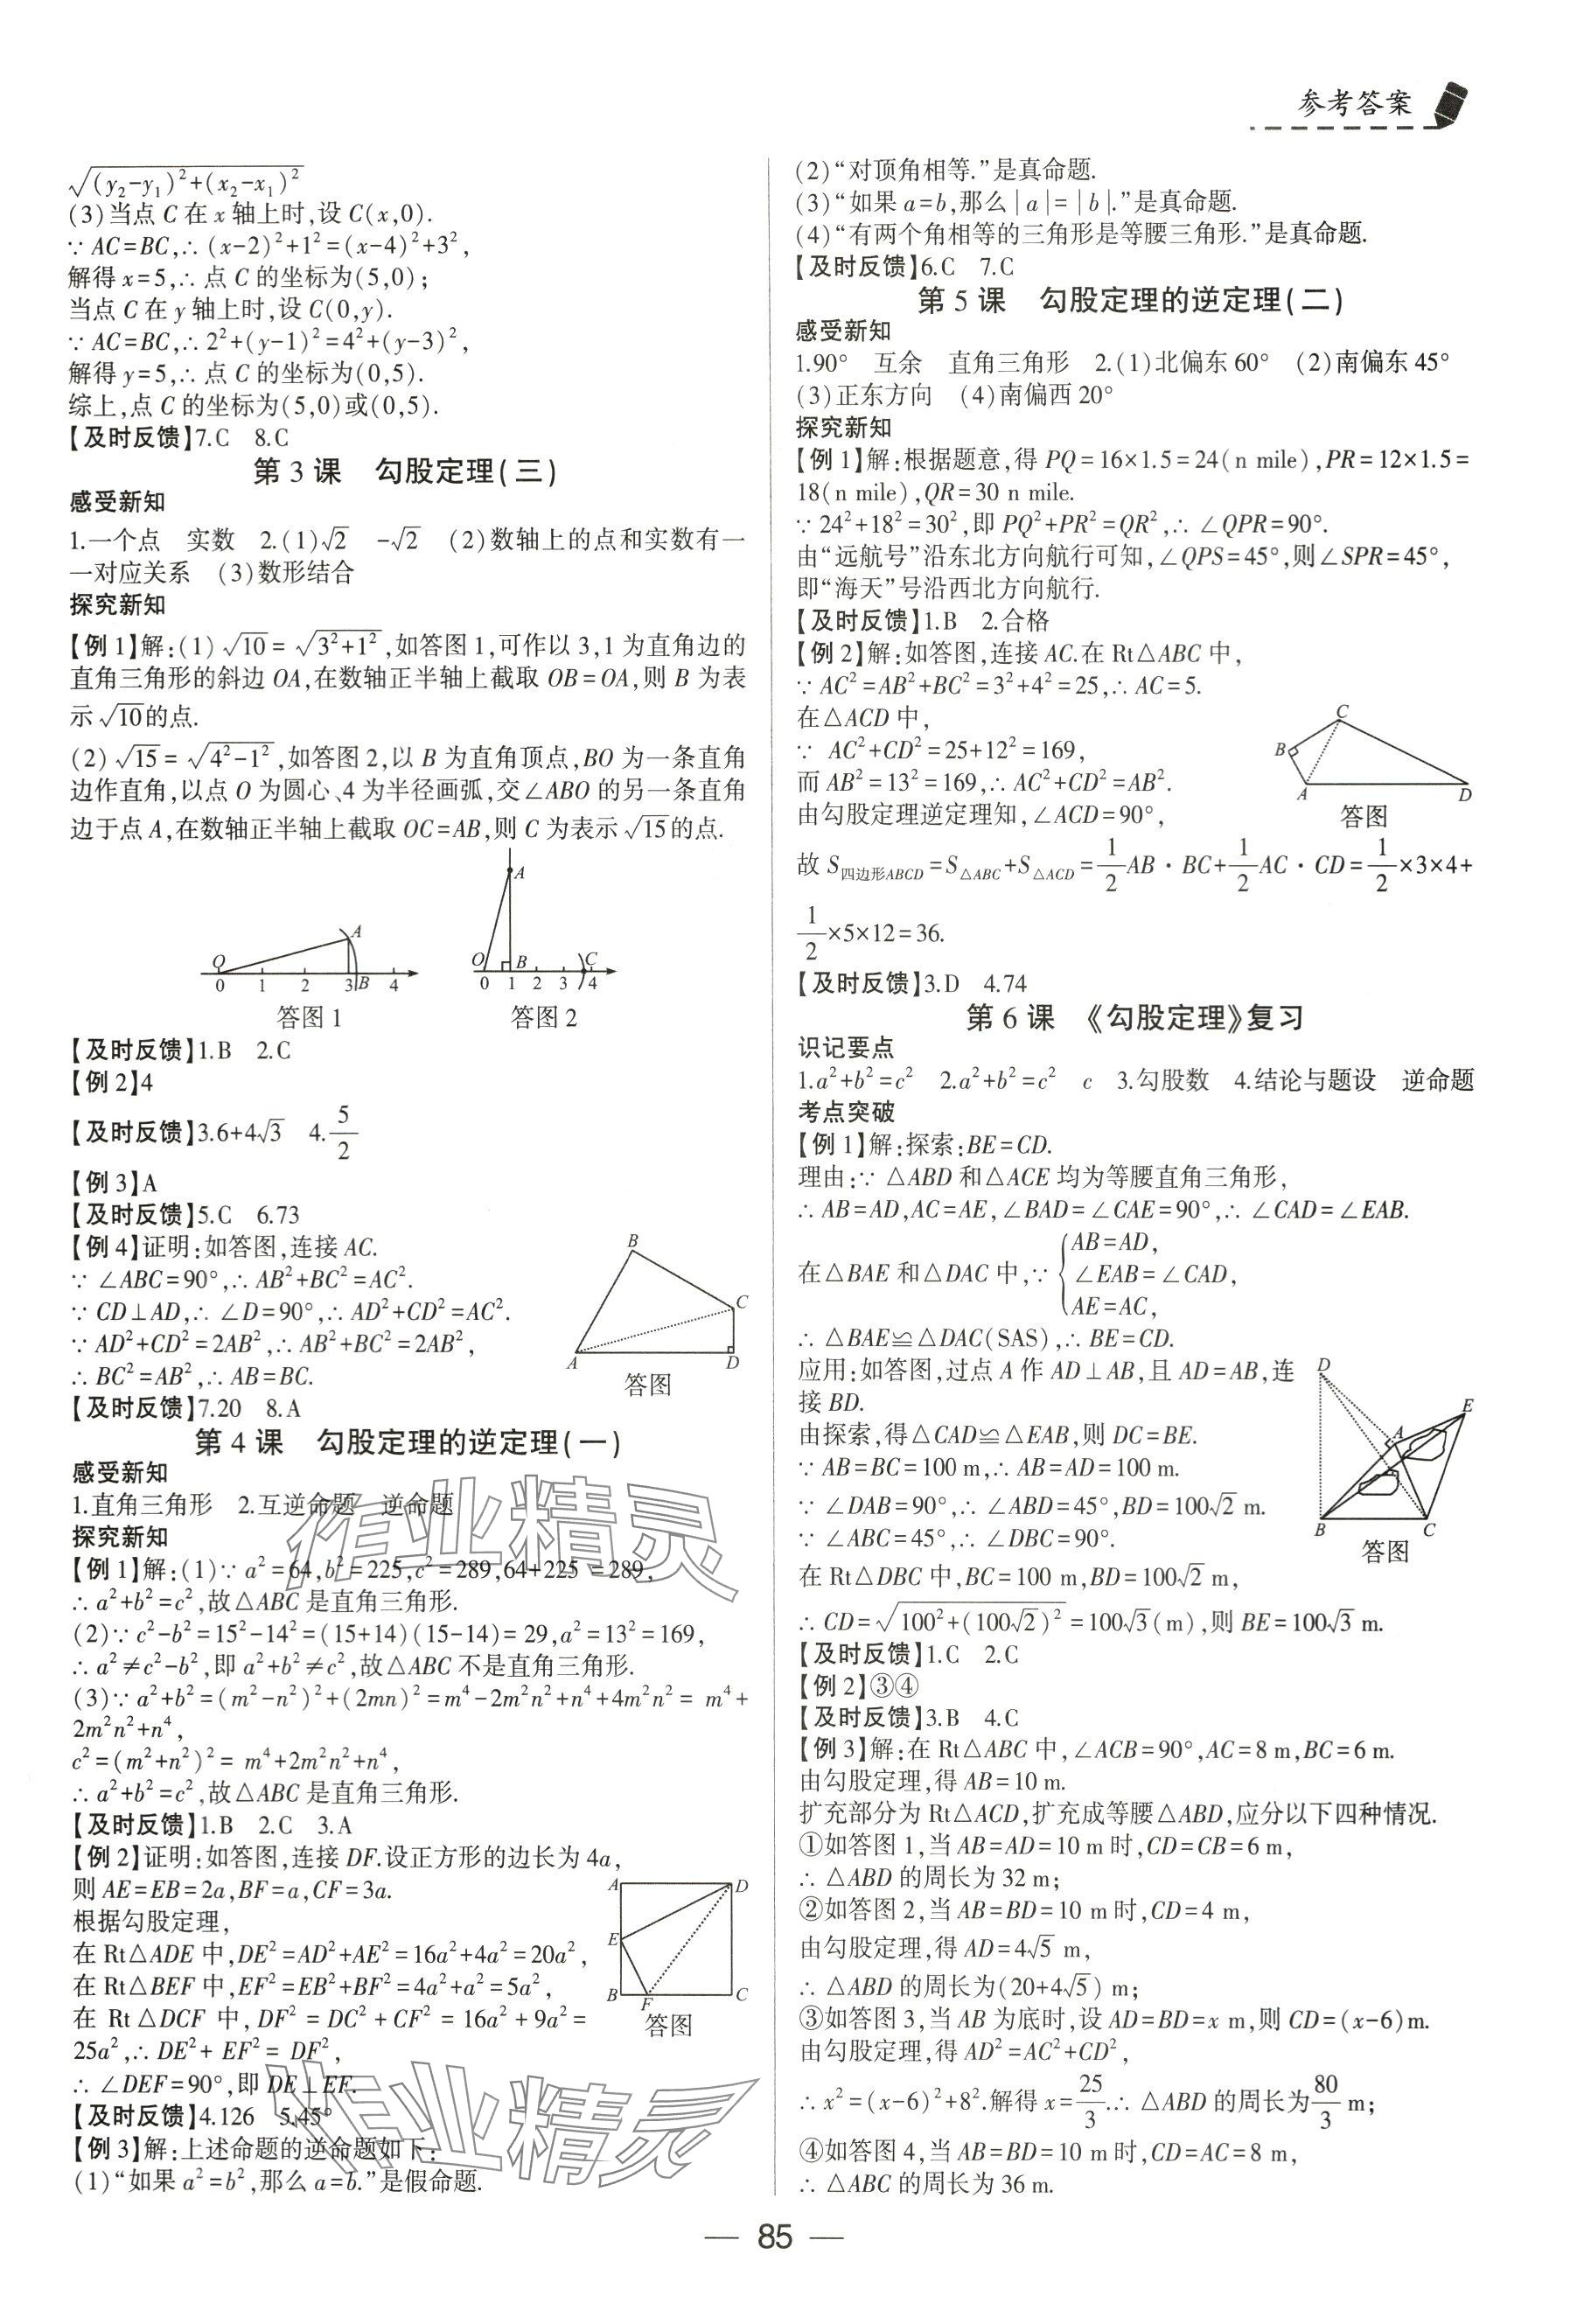 参考答案
√(y₂-y₁)²+(x₂-x₁)²
(3)当点 C 在 x 轴上时,设 C(x,0).
∵ AC=BC,∴ (x-2)²+1²=(x-4)²+3²,
解得 x=5,∴ 点 C 的坐标为(5,0);
当点 C 在 y 轴上时,设 C(0,y).
∵ AC=BC,∴ 2²+(y-1)²=4²+(y-3)²,
解得 y=5,∴ 点 C 的坐标为(0,5).
综上,点 C 的坐标为(5,0)或(0,5).
【及时反馈】7.C 8.C
第 3 课 勾股定理(三)
感受新知
1.一个点 实数 2.(1)√2 -√2 (2)数轴上的点和实数有一
一对应关系 (3)数形结合
探究新知
【例 1】解:(1) √10 = √3²+1² ,如答图 1,可作以 3,1 为直角边的
直角三角形的斜边 OA,在数轴正半轴上截取 OB=OA,则 B 为表
示 √10的点.
(2) √15 = √4²-1² ,如答图 2,以 B 为直角顶点,BO 为一条直角
边作直角,以点 O 为圆心、4 为半径画弧,交∠ABO 的另一条直角
边于点 A,在数轴正半轴上截取 OC=AB,则 C 为表示 √15的点.
O A B 0 1 2 3 4
答图 1
A O B C 0 1 2 3 4
答图 2
【及时反馈】1.B 2.C
【例 2】4
【及时反馈】3.6+4√3 4. 5/2
【例 3】A
【及时反馈】5.C 6.73
【例 4】证明:如答图,连接 AC.
∵ ∠ABC=90°,∴ AB²+BC²=AC².
∵ CD⊥AD,∴ ∠D=90°,∴ AD²+CD²=AC².
∵ AD²+CD²=2AB²,∴ AB²+BC²=2AB²,
∴ BC²=AB²,∴ AB=BC.
B C A D
答图
【及时反馈】7.20 8.A
第 4 课 勾股定理的逆定理(一)
感受新知
1.直角三角形 2.互逆命题 逆命题
探究新知
【例 1】解:(1)∵ a²=64,b²=225,c²=289,64+225 =289,
∴ a²+b²=c²,故△ABC 是直角三角形.
(2)∵ c²-b²=15²-14²=(15+14)(15-14)=29,a²=13²=169,
∴ a²≠c²-b²,即 a²+b²≠c²,故△ABC 不是直角三角形.
(3)∵ a²+b²=(m²-n²)²+(2mn)²=m⁴-2m²n²+n⁴+4m²n²= m⁴+
2m²n²+n⁴,
c²=(m²+n²)²= m⁴+2m²n²+n⁴,
∴ a²+b²=c²,故△ABC 是直角三角形.
【及时反馈】1.B 2.C 3.A
【例 2】证明:如答图,连接 DF.设正方形的边长为 4a,
则 AE=EB=2a,BF=a,CF=3a.
根据勾股定理,
在 Rt△ADE 中,DE²=AD²+AE²=16a²+4a²=20a²,
在 Rt△BEF 中,EF²=EB²+BF²=4a²+a²=5a²,
在 Rt△DCF 中, DF² = DC² + CF² = 16a² + 9a² =
25a²,∴ DE²+ EF²= DF²,
∴ ∠DEF=90°,即 DE⊥EF.
A D E B F C
答图
【及时反馈】4.126 5.45°
【例 3】解:上述命题的逆命题如下:
(1)“如果 a²=b²,那么 a=b.”是假命题.
作业精灵
作业精灵
(2)“对顶角相等.”是真命题.
(3)“如果 a=b,那么|a|=|b|.”是真命题.
(4)“有两个角相等的三角形是等腰三角形.”是真命题.
【及时反馈】6.C 7.C
第 5 课 勾股定理的逆定理(二)
感受新知
1.90° 互余 直角三角形 2.(1)北偏东 60° (2)南偏东 45°
(3)正东方向 (4)南偏西 20°
探究新知
【例 1】解:根据题意,得 PQ=16×1.5=24(n mile),PR=12×1.5=
18(n mile),QR=30 n mile.
∵ 24²+18²=30²,即 PQ²+PR²=QR²,∴ ∠QPR=90°.
由“远航号”沿东北方向航行可知,∠QPS=45°,则∠SPR=45°,
即“海天”号沿西北方向航行.
【及时反馈】1.B 2.合格
【例 2】解:如答图,连接 AC.在 Rt△ABC 中,
∵ AC²=AB²+BC²=3²+4²=25,∴ AC=5.
在△ACD 中,
∵ AC²+CD²=25+12²=169,
而 AB²=13²=169,∴ AC²+CD²=AB².
由勾股定理逆定理知,∠ACD=90°,
C B A D
答图
故 S四边形ABCD=S△ABC+S△ACD= 1/2 AB·BC+ 1/2 AC·CD= 1/2 ×3×4+
1/2 ×5×12=36.
【及时反馈】3.D 4.74
第 6 课 《勾股定理》复习
识记要点
1.a²+b²=c² 2.a²+b²=c² c 3.勾股数 4.结论与题设 逆命题
考点突破
【例 1】解:探索:BE=CD.
理由:∵ △ABD 和△ACE 均为等腰直角三角形,
∴ AB=AD,AC=AE,∠BAD=∠CAE=90°,∴ ∠CAD=∠EAB.
AB=AD,
在△BAE 和△DAC 中,∵ { ∠EAB=∠CAD,
AE=AC,
∴ △BAE≌△DAC(SAS),∴ BE=CD.
应用:如答图,过点 A 作 AD⊥AB,且 AD=AB,连
接 BD.
由探索,得△CAD≌△EAB,则 DC=BE.
∵ AB=BC=100 m,∴ AB=AD=100 m.
∵ ∠DAB=90°,∴ ∠ABD=45°,BD=100√2 m.
∵ ∠ABC=45°,∴ ∠DBC=90°.
D E A B C
答图
在 Rt△DBC 中,BC=100 m,BD=100√2 m,
∴ CD=√100²+(100√2)² =100√3(m),则 BE=100√3 m.
【及时反馈】1.C 2.C
【例 2】③④
【及时反馈】3.B 4.C
【例 3】解:在 Rt△ABC 中,∠ACB=90°,AC=8 m,BC=6 m.
由勾股定理,得 AB=10 m.
扩充部分为 Rt△ACD,扩充成等腰△ABD,应分以下四种情况.
①如答图 1,当 AB=AD=10 m 时,CD=CB=6 m,
∴ △ABD 的周长为 32 m;
②如答图 2,当 AB=BD=10 m 时,CD=4 m,
由勾股定理,得 AD=4√5 m,
∴ △ABD 的周长为(20+4√5) m;
③如答图 3,当 AB 为底时,设 AD=BD=x m,则 CD=(x-6)m.
由勾股定理,得 AD²=AC²+CD²,
∴ x²=(x-6)²+8².解得 x= 25/3 .∴ △ABD 的周长为 80/3 m;
④如答图 4,当 AB=BD=10 m 时,CD=AC=8 m,
∴ △ABC 的周长为 36 m.
— 85 —